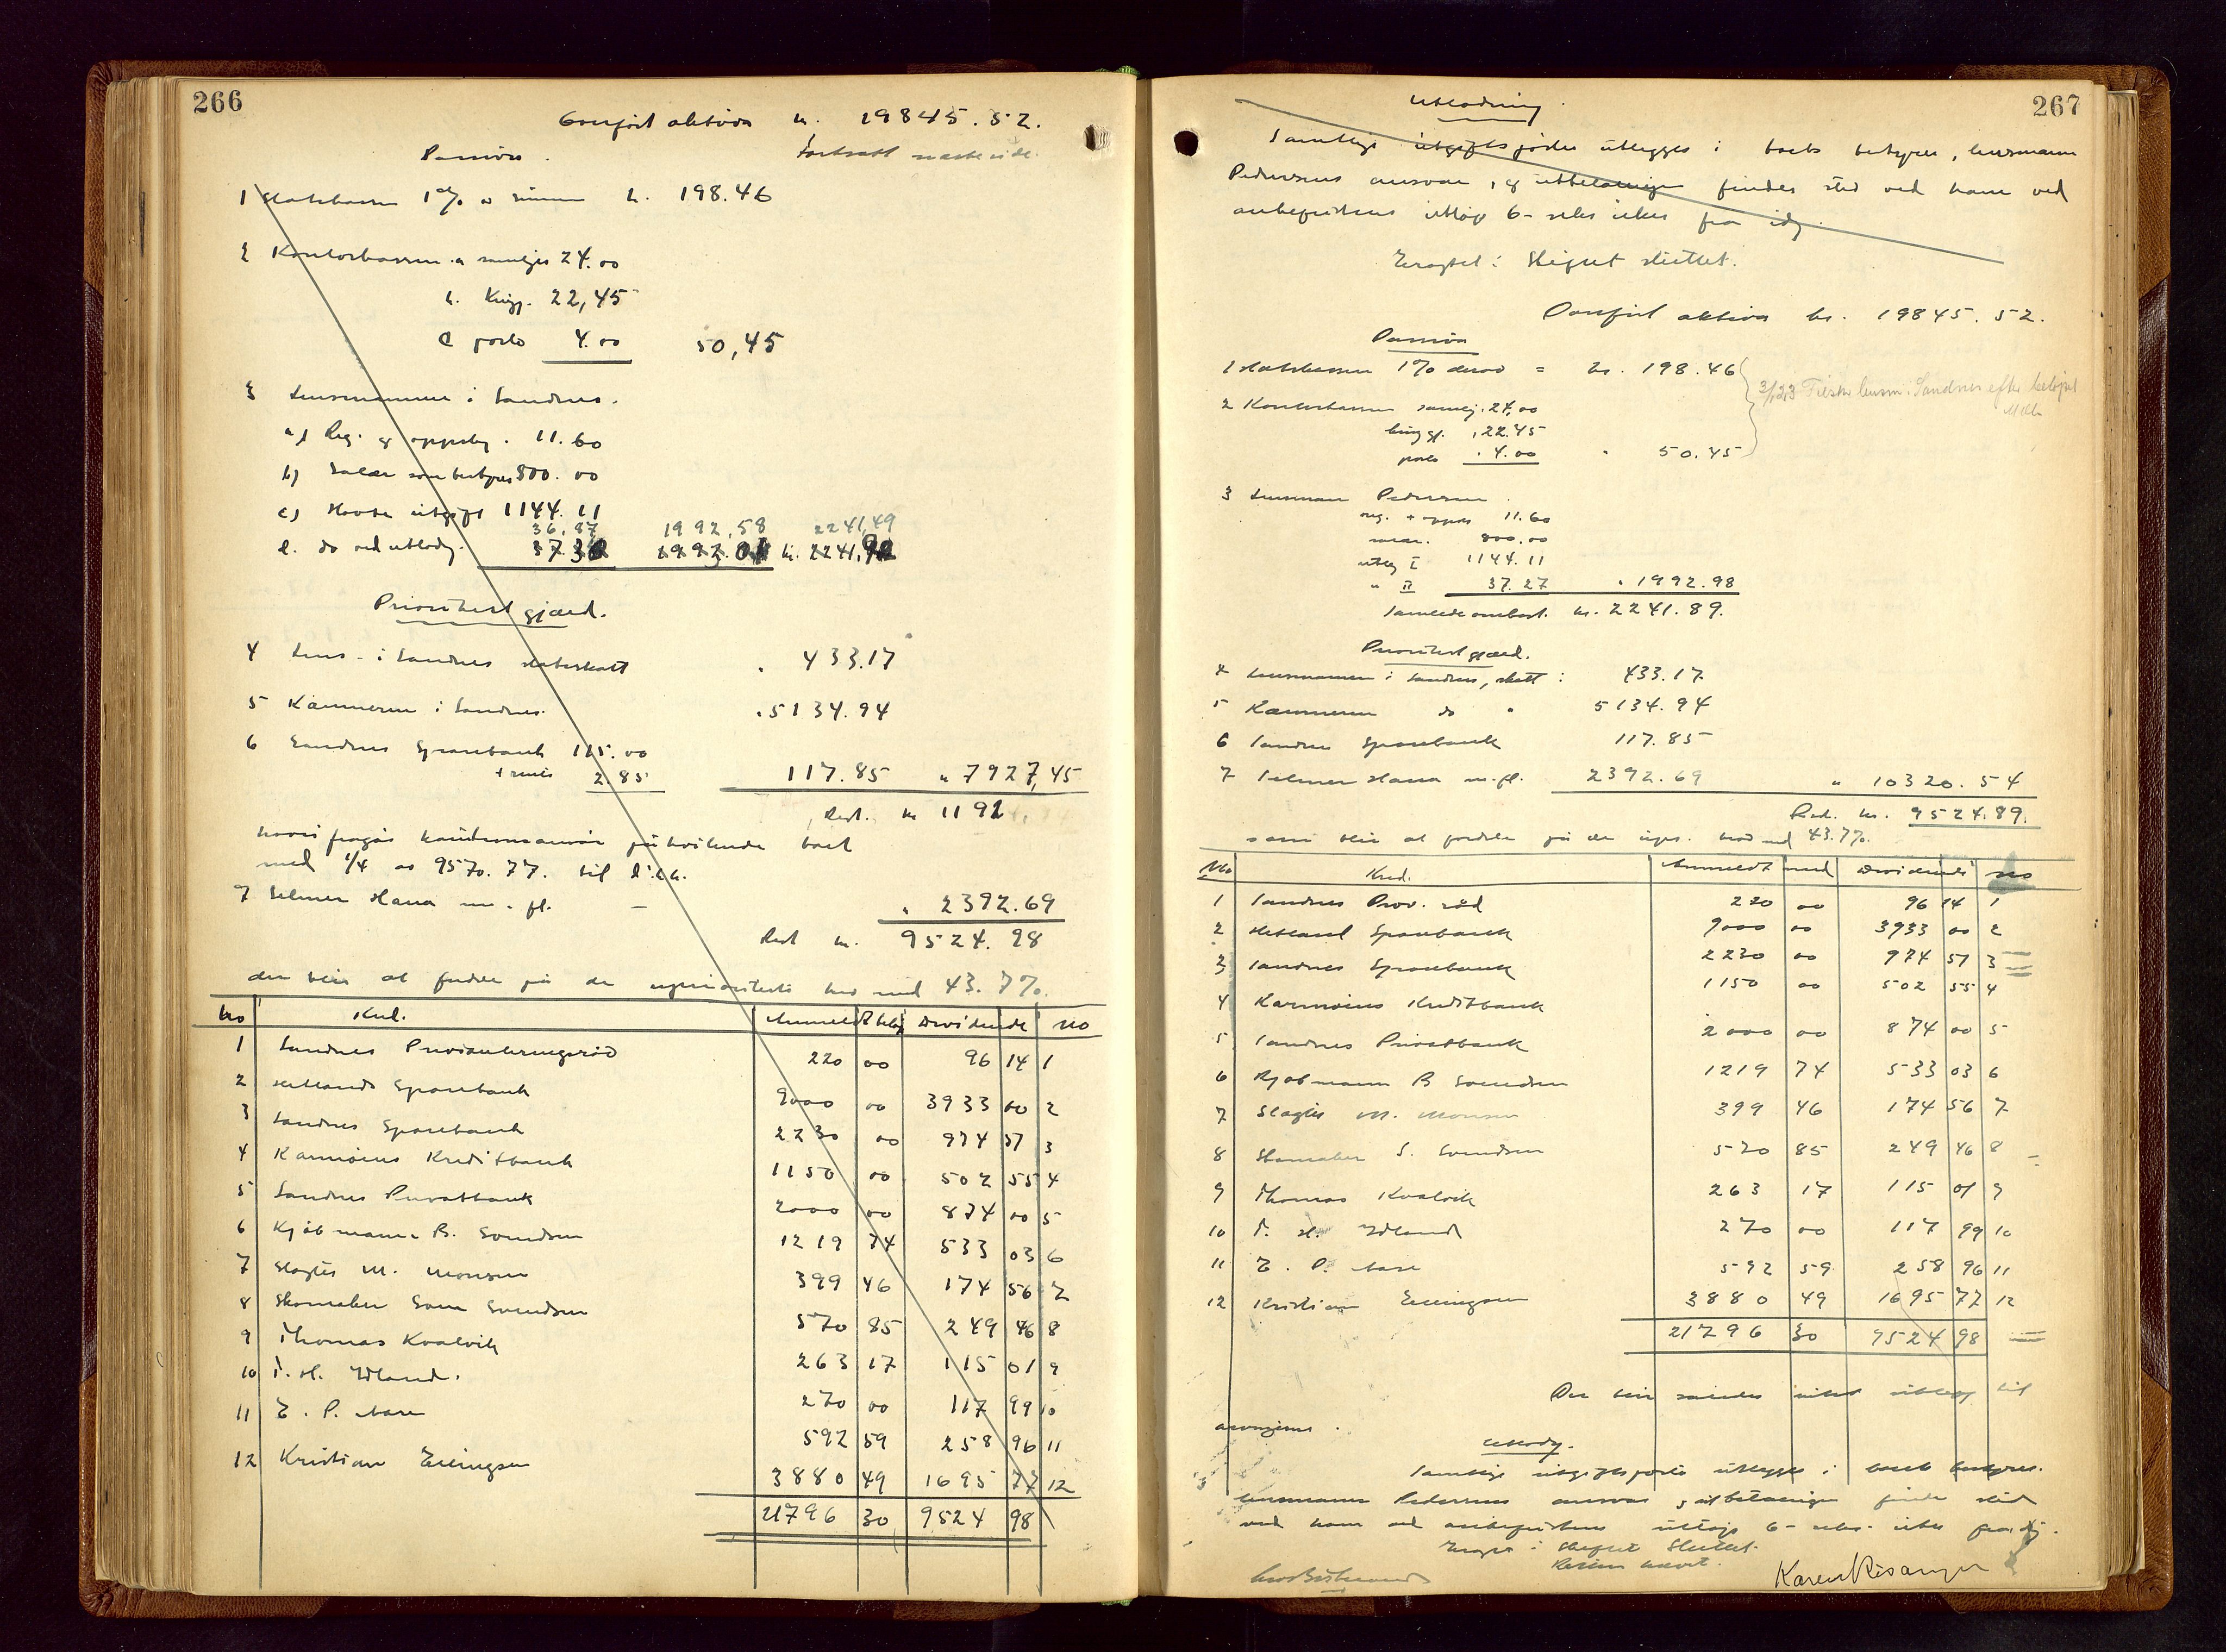 266
Overført aktiva kr. 19845.52.
Passiva.
Fortsatt næste side.
1 Statskassen 1% av summen kr. 198.46
2 Kontorkassen a 24.00
b. Kungj. 22,45
c porto 4.00 50,45
3 Lensmannen i Sandnes.
a) Reg. og oppskr. 11.60
b) Salær som bestyrer 800.00
c) Havte utgift 1144.11
36,87 1992,58 2241,49
d. do ved utlodn.
Prioritert gjæld.
4 Lens. i Sandnes statsskatt 433.17
5 Kæmneren i Sandnes. 5134.94
6 Sandnes Sparebank 115.00
+ renter 2.85 117.85 " 7927,45
Rest. kr 1192
hvori fragår kautionsansvar påhvilende boet
med 1/4 av 9570.77. til
7 Selmer Hana m. fl. — " 2392.69
Rest kr. 9524.98
der blir at fordele på de uprioriterte krav med 43.7%.
No Kred. Anmeldt beløp Dividende No
1 Sandnes Provianteringsråd 220 00 96 14 1
2 Hetlands Sparebank 9000 00 3933 00 2
3 Sandnes Sparebank 2230 00 974 51 3
4 Karmøens Kreditbank 1150 00 502 55 4
5 Sandnes Privatbank 2000 00 874 00 5
6 Kjøbmann B. Svendsen 1219 74 533 03 6
7 Slagter M. Monsen 399 46 174 56 7
8 Skomaker Sven Svendsen 570 85 249 46 8
9 Thomas Kvalvik 263 17 115 01 9
10 T. H. Idland. 270 00 117 99 10
11 E. P. Aase 592 59 258 96 11
12 Kristian Ellingsen 3880 49 1695 77 12
21796 30 9524 98
267
Utlodning.
Samtlige utgiftsposter utlegges i boets bestyrer, lensmann
Pedersens ansvar, og utbetalingen finder sted ved ham ved
ankefristens utløp 6- seks uker fra idag.
Eragtet: Skiftet sluttet.
Overført aktiva kr. 19845.52.
Passiva
1 Statskassen 1% derav = kr. 198.46
3/1 23 Tilskr. lensm. Sandnes efter beløpet
2 Kontorkassen 24,00
kungj. , 22.45
porto . 4.00 " 50.45
3 Lensman Pedersen.
reg. + oppskr 11.60
salær. 800.00
utlæg I 1144.11
" II 37.27 " 1992.98
Samlede omkost. kr. 2241.89.
Prioritert gjæld.
4 Lensmannen i Sandnes, skatt: 433.17
5 Kæmneren do " 5134.94
6 Sandnes Sparebank 117.85
7 Selmer Hana m. fl. 2392.69 " 10320.54
Rest. kr. 9524.89.
som blir at fordele på de uprt. krav med 43.7%.
No Kred. Anmeldt med Dividende No
1 Sandnes Prov. råd 220 00 96 14 1
2 Hetland Sparebank 9000 00 3933 00 2
3 Sandnes Sparebank 2230 00 974 51 3
4 Karmøens Kreditbank 1150 00 502 55 4
5 Sandnes Privatbank 2000 00 874 00 5
6 Kjøbmann B Svendsen 1219 74 533 03 6
7 Slagter M. Monsen 399 46 174 56 7
8 Skomaker S. Svendsen 570 85 249 46 8
9 Thomas Kvalvik 263 17 115 01 9
10 T. H. Idland 270 00 117 99 10
11 E. P. Aase 592 59 258 96 11
12 Kristian Ellingsen 3880 49 1695 77 12
21796 30 9524 98
Der blir således intet utlegg til
arvingerne.
Utlodn.
Samtlige utgiftsposter utlegges i boets bestyrer.
lensmann Pedersens ansvar, og utbetalingen finder sted
ved ham ved ankefristens utløp 6- seks- uker fra idag.
Eragtet: Skiftet Sluttet.
Retten hævet.
Karen Risanger